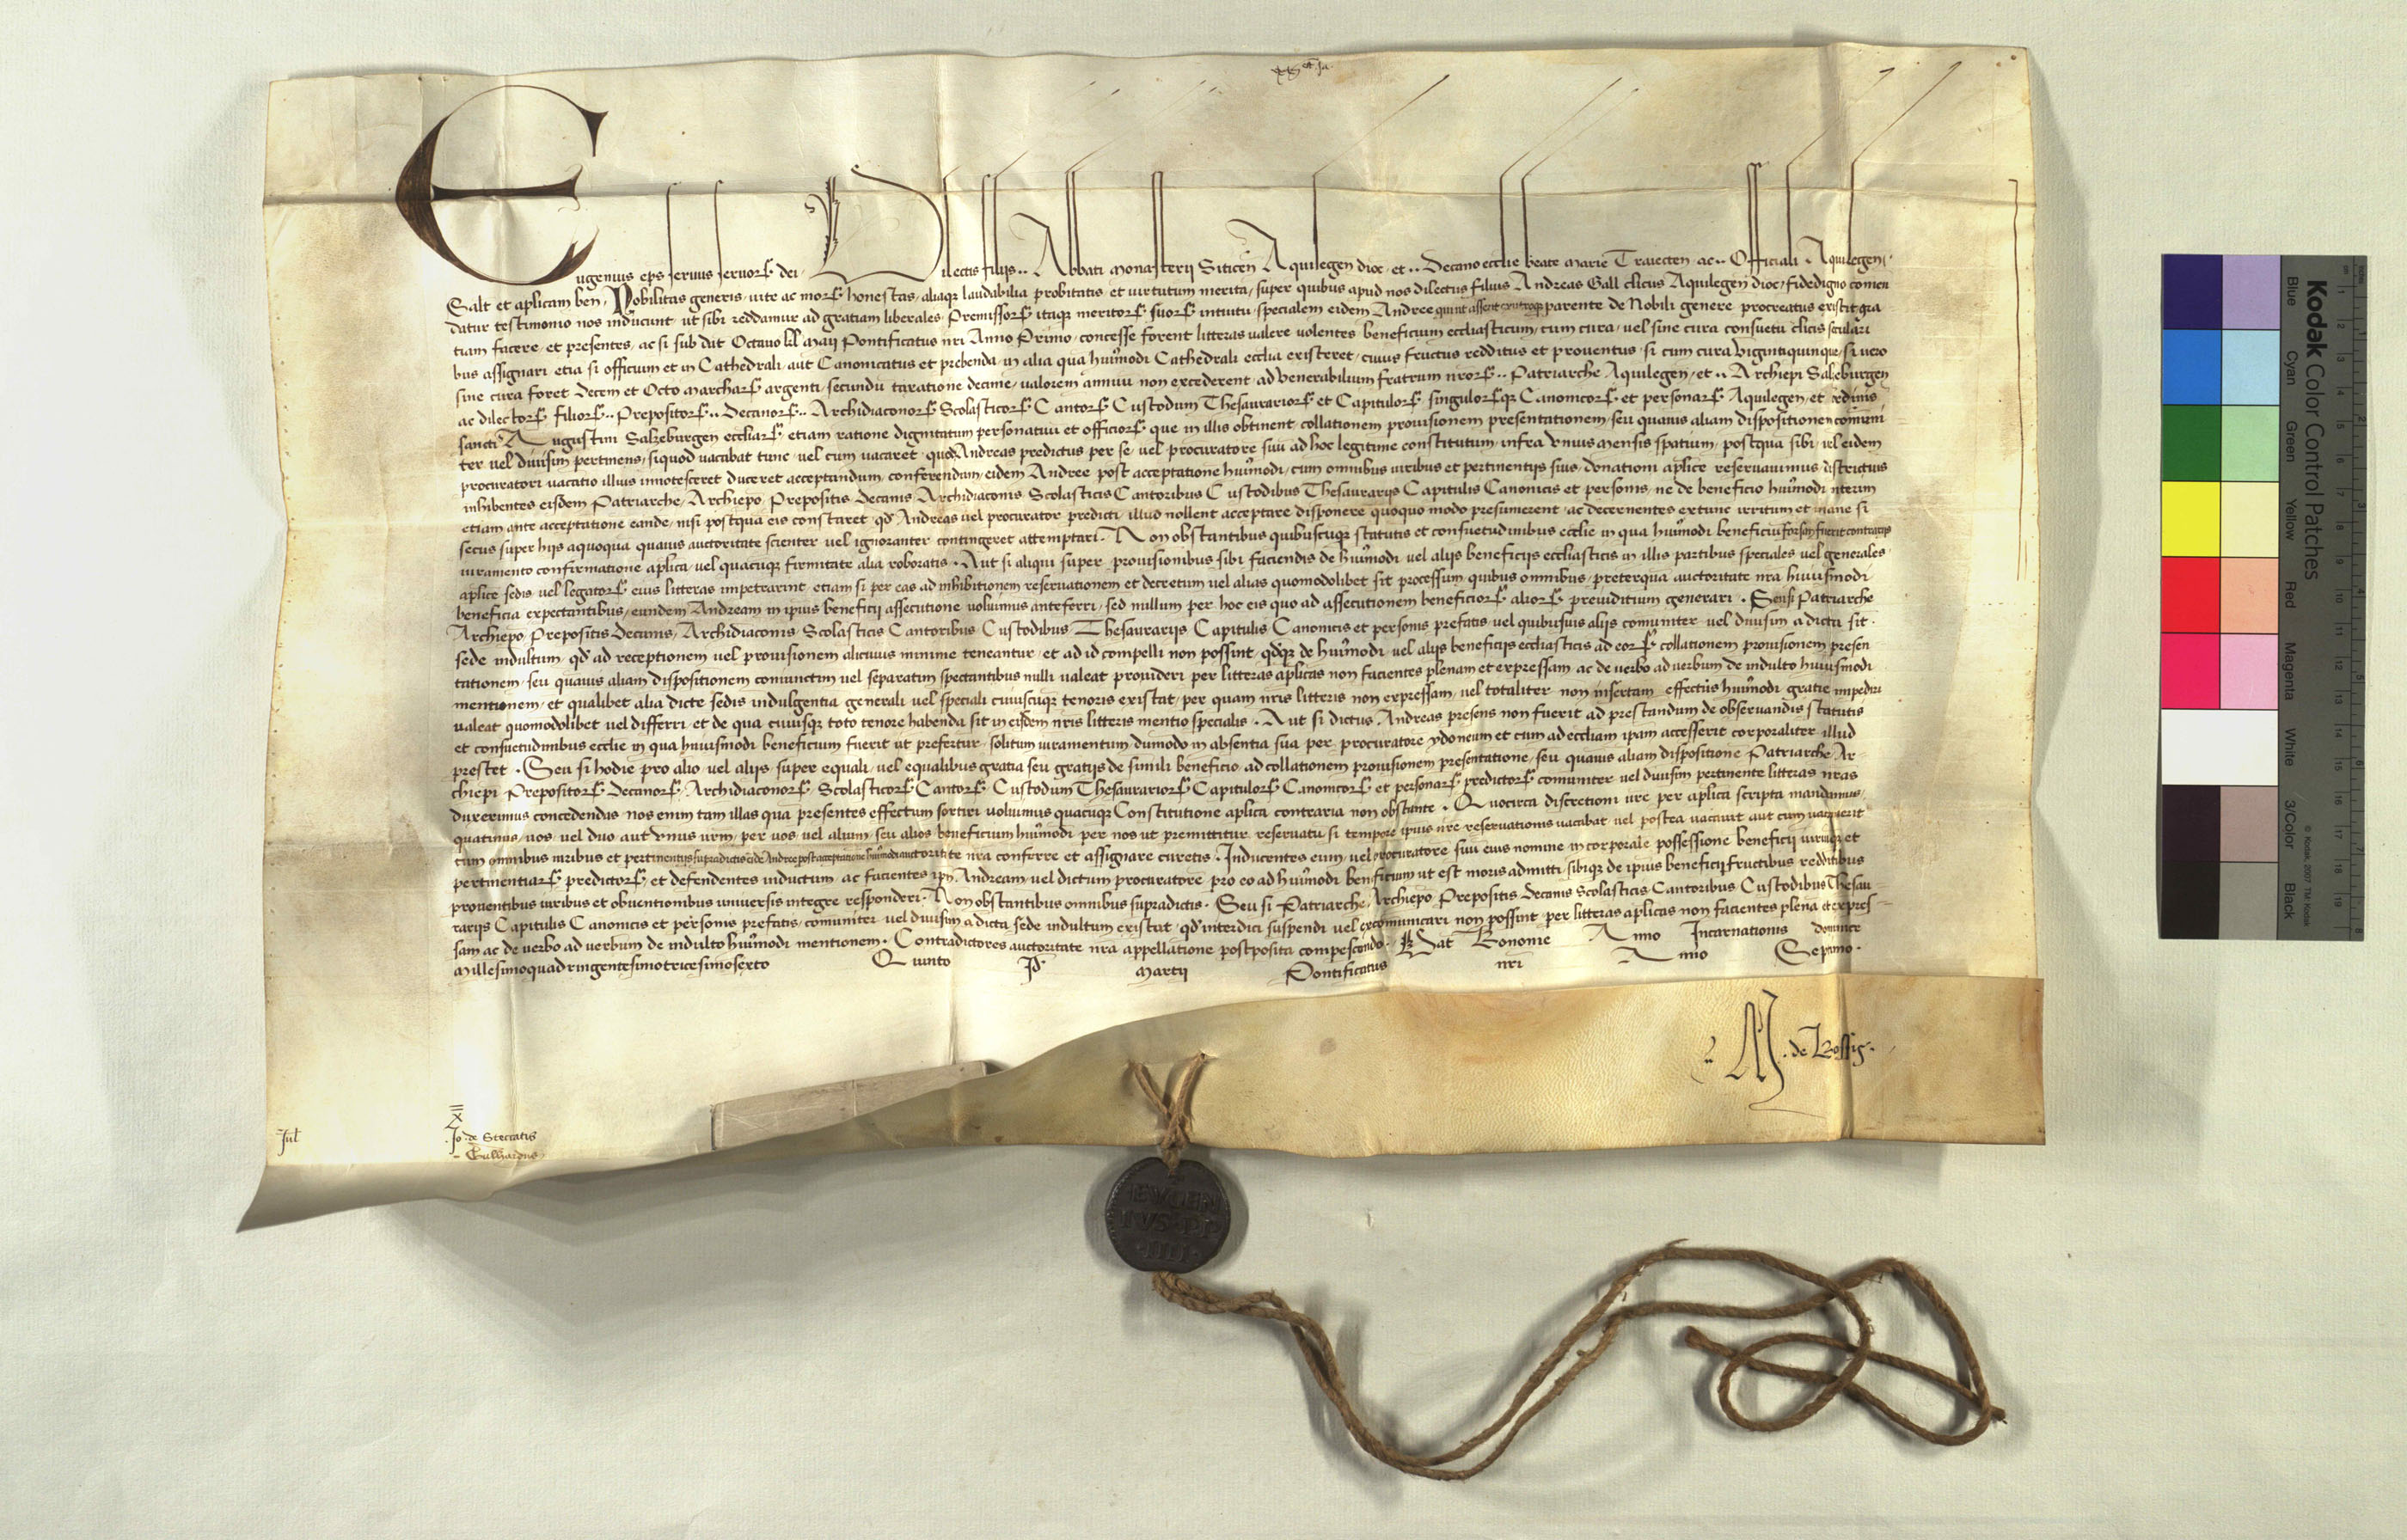 Eugenius eps servus servorꝝ dei Dilectis filiis .. Abbati monasterij Siticen Aquilegen dioc et .. Decano ecclie beate Marie Traiecten ac .. Officiali Aquilegen
Salt et aplicam ben Nobilitas generis vite ac morꝝ honestas aliaqꝫ laudabilia probitatis et virtutum merita super quibus apud nos dilectus filius Andreas Gall clicus Aquilegen dioc fidedigno comen
datur testimonio nos inducunt ut sibi reddamur ad gratiam liberales Premissorꝝ itaqꝫ meritorꝝ suorꝝ intuitu specialem eidem Andree qui ut asserit ex utroqꝫ parente de Nobili genere procreatus existit gra
tiam facere et presentes ac si sub dat Octavo kl Maij Pontificatus nri Anno Primo concesse forent litteras valere volentes beneficium ecclasticum cum cura vel sine cura consuetu clicis secular
bus assignari etia si officium et in Cathedrali aut Canonicatus et prebenda in alia qua huiusmodi Cathedrali ecclia existeret cuius fructus redditus et proventus si cum cura vigintiquinque si vero
sine cura foret Decem et Octo marcharꝝ argenti secundu taxatione decime valorem annuu non excederent ad venerabilium fratrum nrorꝝ .. Patriarche Aquilegen et .. Archiepi Salzeburgen
ac dilectorꝝ filiorꝝ .. Prepositorꝝ .. Decanorꝝ .. Archidiaconorꝝ Scolasticorꝝ Cantorꝝ Custodum Thesaurariorꝝ et Capitulorꝝ singulorꝝqꝫ Canonicorꝝ et personarꝝ Aquilegen et ordinis
sancti Augustini Salzeburgen eccliarꝝ etiam ratione dignitatum personatuu et officiorꝝ que in illis obtinent collationem provisionem presentationem seu quamvis aliam dispositionem comuni
ter vel divisim pertinens siquod vacabat tunc vel cum vacaret quod Andreas predictus per se vel procuratore suu ad hoc legitime constitutum infra unius mensis spatium postqua sibi vel eidem
procuratori vacatio illius innotesceret duceret acceptandum conferendum eidem Andree post acceptatione huiusmodi cum omnibus iuribus et pertinentijs suis donationi aplice reservavimus districtius
inhibentes eisdem Patriarche Archiepo Prepositis Decanis Archidiaconis Scolasticis Cantoribus Custodibus Thesaurarijs Capitulis Canonicis et personis ne de beneficio huiusmodi interim
etiam ante acceptatione eande nisi postqua eis constaret qd Andreas vel procurator predicti illud nollent acceptare disponere quoquo modo presumerent ac decernentes extunc irritum et inane si
secus super hijs a quoqua quavis auctoritate scienter vel ignoranter contingeret attemptari Non obstantibus quibuscuqꝫ statutis et consuetudinibus ecclie in qua huiusmodi beneficiu forsan fuerit contrarijs
iuramento confirmatione aplica vel quacuqꝫ firmitate alia roboratis Aut si aliqui super provisionibus sibi faciendis de huiusmodi vel alijs beneficijs ecclasticis in illis partibus speciales vel generales
aplice sedis vel legatorꝝ eius litteras impetrarint etiam si per eas ad inhibitionem reservationem et decretum vel alias quomodolibet sit processum quibus omnibus preterqua auctoritate nra huiusmodi
beneficia expectantibus eundem Andream in ipius beneficij assecutione volumus anteferri sed nullum per hoc eis quo ad assecutionem beneficiorꝝ aliorꝝ preiuditium generari Seu si Patriarche
Archiepo Prepositis Decanis Archidiaconis Scolasticis Cantoribus Custodibus Thesaurarijs Capitulis Canonicis et personis prefatis vel quibusvis alijs comuniter vel divisim a dicta sit
sede indultum qd ad receptionem vel provisionem alicuius minime teneantur et ad id compelli non possint qdqꝫ de huiusmodi vel alijs beneficijs ecclasticis ad eorꝝ collationem provisionem presen
tationem seu quamvis aliam dispositionem coniunctim vel separatim spectantibus nulli valeat provideri per litteras aplicas non facientes plenam et expressam ac de verbo ad verbum de indulto huiusmodi
mentionem et qualibet alia dicte sedis indulgentia generali vel speciali cuiuscuqꝫ tenoris existat per quam nris litteris non expressam vel totaliter non insertam effectus huiusmodi gratie impediri
valeat quomodolibet vel differri et de qua cuiusqꝫ toto tenore habenda sit in eisdem nris litteris mentio specialis Aut si dictus Andreas presens non fuerit ad prestandum de observandis statutis
et consuetudinibus ecclie in qua huiusmodi beneficium fuerit ut prefertur solitum iuramentum dumodo in absentia sua per procuratore ydoneum et cum ad eccliam ipam accesserit corporaliter illud
prestet Seu si hodie pro alio vel alijs super equali vel equalibus gratia seu gratijs de simili beneficio ad collationem provisionem presentatione seu quamvis aliam dispositione Patriarche Ar
chiepi Prepositorꝝ Decanorꝝ Archidiaconorꝝ Scolasticorꝝ Cantorꝝ Custodum Thesaurariorꝝ Capitulorꝝ Canonicorꝝ et personarꝝ predictorꝝ comuniter vel divisim pertinente litteras nras
duxerimus concedendas nos enim tam illas qua presentes effectum sortiri volumus quacuqꝫ Constitutione aplica contraria non obstante Quocirca discretioni vre per aplica scripta mandamus
quatinus vos vel duo aut unus vrm per vos vel alium seu alios beneficium huiusmodi per nos ut premittitur reservatu si tempore ipius nre reservationis vacabat vel postea vacavit aut cum vacaverit
cum omnibus iuribus et pertinentijs supradictis eide Andree post acceptatione huiusmodi auctoritate nra conferre et assignare curetis Inducentes eum vel procuratore suu eius nomine in corporale possessione beneficij iuriuqꝫ et
pertinentiarꝝ predictorꝝ et defendentes inductum ac facientes ipm Andream vel dictum procuratore pro eo ad huiusmodi beneficium ut est moris admitti sibiqꝫ de ipius beneficij fructibus redditibus
proventibus iuribus et obventionibus universis integre responderi Non obstantibus omnibus supradictis Seu si Patriarche Archiepo Prepositis Decanis Scolasticis Cantoribus Custodibus Thesau
rarijs Capitulis Canonicis et personis prefatis comuniter vel divisim a dicta sede indultum existat qd interdici suspendi vel excomunicari non possint per litteras aplicas non facientes plena et expres
sam ac de verbo ad verbum de indulto huiusmodi mentionem Contradictores auctoritate nra appellatione postposita compescendo Dat Bononie Anno Incarnationis dominice
Millesimoquadringentesimotricesimosexto Quinto Id Martij Pontificatus nri Anno Septimo
M. de Bossis
Jul
x
Jo. de Steccatis
EVGEN
IVS·PP
·IIII·
Kodak Color Control Patches
Blue Cyan Green Yellow Red Magenta White 3/Color Black
© Kodak, 2007 TM: Kodak